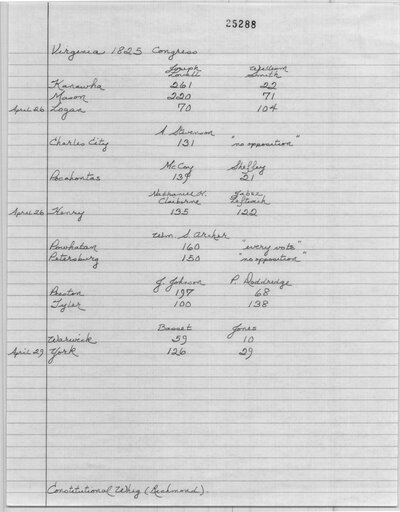 25288
Virginia 1825 Congress
Joseph Lovell William Smith
Kanawha 261 22
Mason 220 71
April 26 Logan 70 104
A. Stevenson
Charles City 131 "no opposition"
McCoy Sheffey
Pocahontas 139 21
Nathaniel H. Claiborne Jabez Leftwich
April 26 Henry 135 122
Wm. S. Archer
Powhatan 160 "every vote"
Petersburg 150 "no opposition"
J. Johnson P. Doddridge
Preston 197 68
Tyler 100 138
Basset Jones
Warwick 59 10
April 29 York 126 29
Constitutional Whig (Richmond).